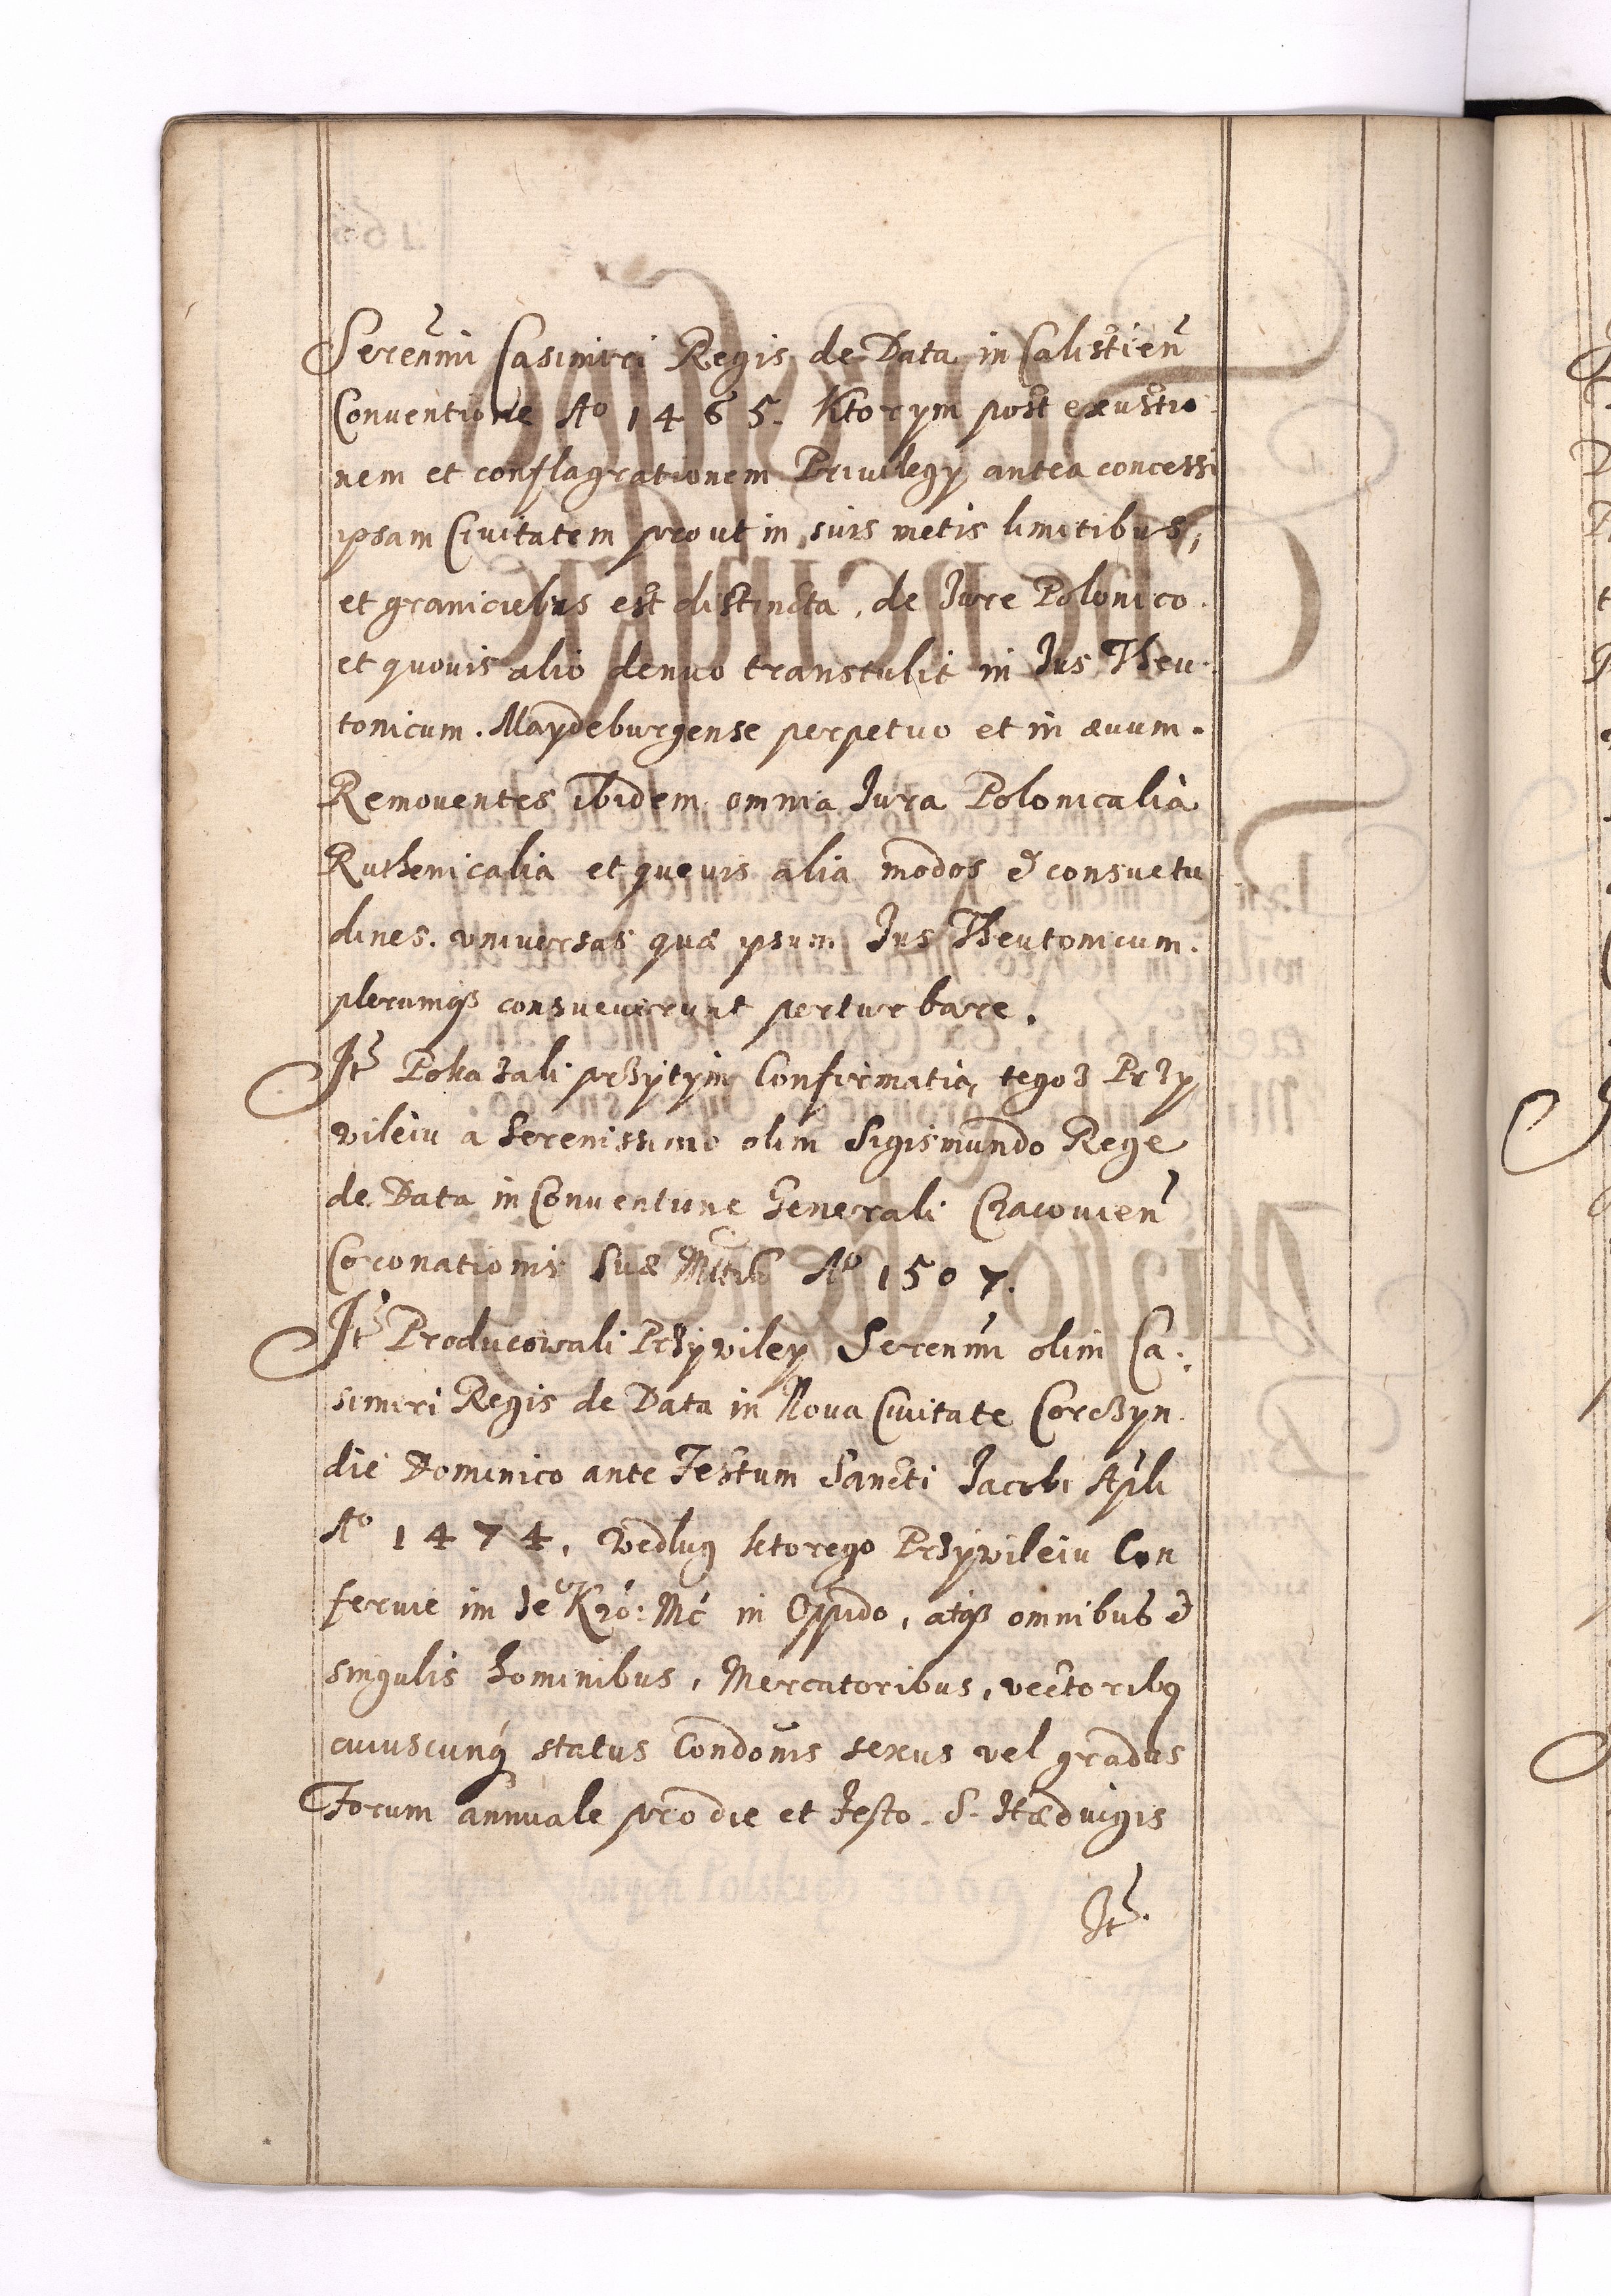 Serenmi Casimiri Regis de Data in Calistien
Conventione Ao 1465. Ktorym post exustio
nem et conflagrationem Privilegy antea concessi
ipsam Civitatem prout in suis metis limitibus,
et graniciebus est distincta, de Jure Polonico.
et quovis alio denuo transtulit in Jus Theu
tonicum. Maydeburgense perpetuo et in ævum.
Removentes ibidem omnia Jura Polonicalia
Ruthenicalia et quevis alia modos & consuetu
dines. universas quæ ipsum Jus Theutonicum.
plerumqꝫ consueverunt perturbare.
Jt Pokazali przytym Confirmatią tegoz Przy
vileiu a Serenissimo olim Sigismundo Rege
de Data in Conventione Generali Cracovien
Coronationis Suæ Mttis Ao 1507.
Jt Producowali Przyviley Serenmi olim Ca:
simiri Regis de Data in Nova Civitate Corczyn
die Dominico ante Festum Sancti Jacobi Apli
Ao 1474, vedlug ktorego Przyvileiu Con
feruie im Je Kro: Mć in Oppido, atqꝫ omnibus &
singulis hominibus, Mercatoribus, vectoribꝫ
cuiuscunq status Condonis sexus vel gradus
Forum annuale pro die et Festo S. Hædvigis
Jt.